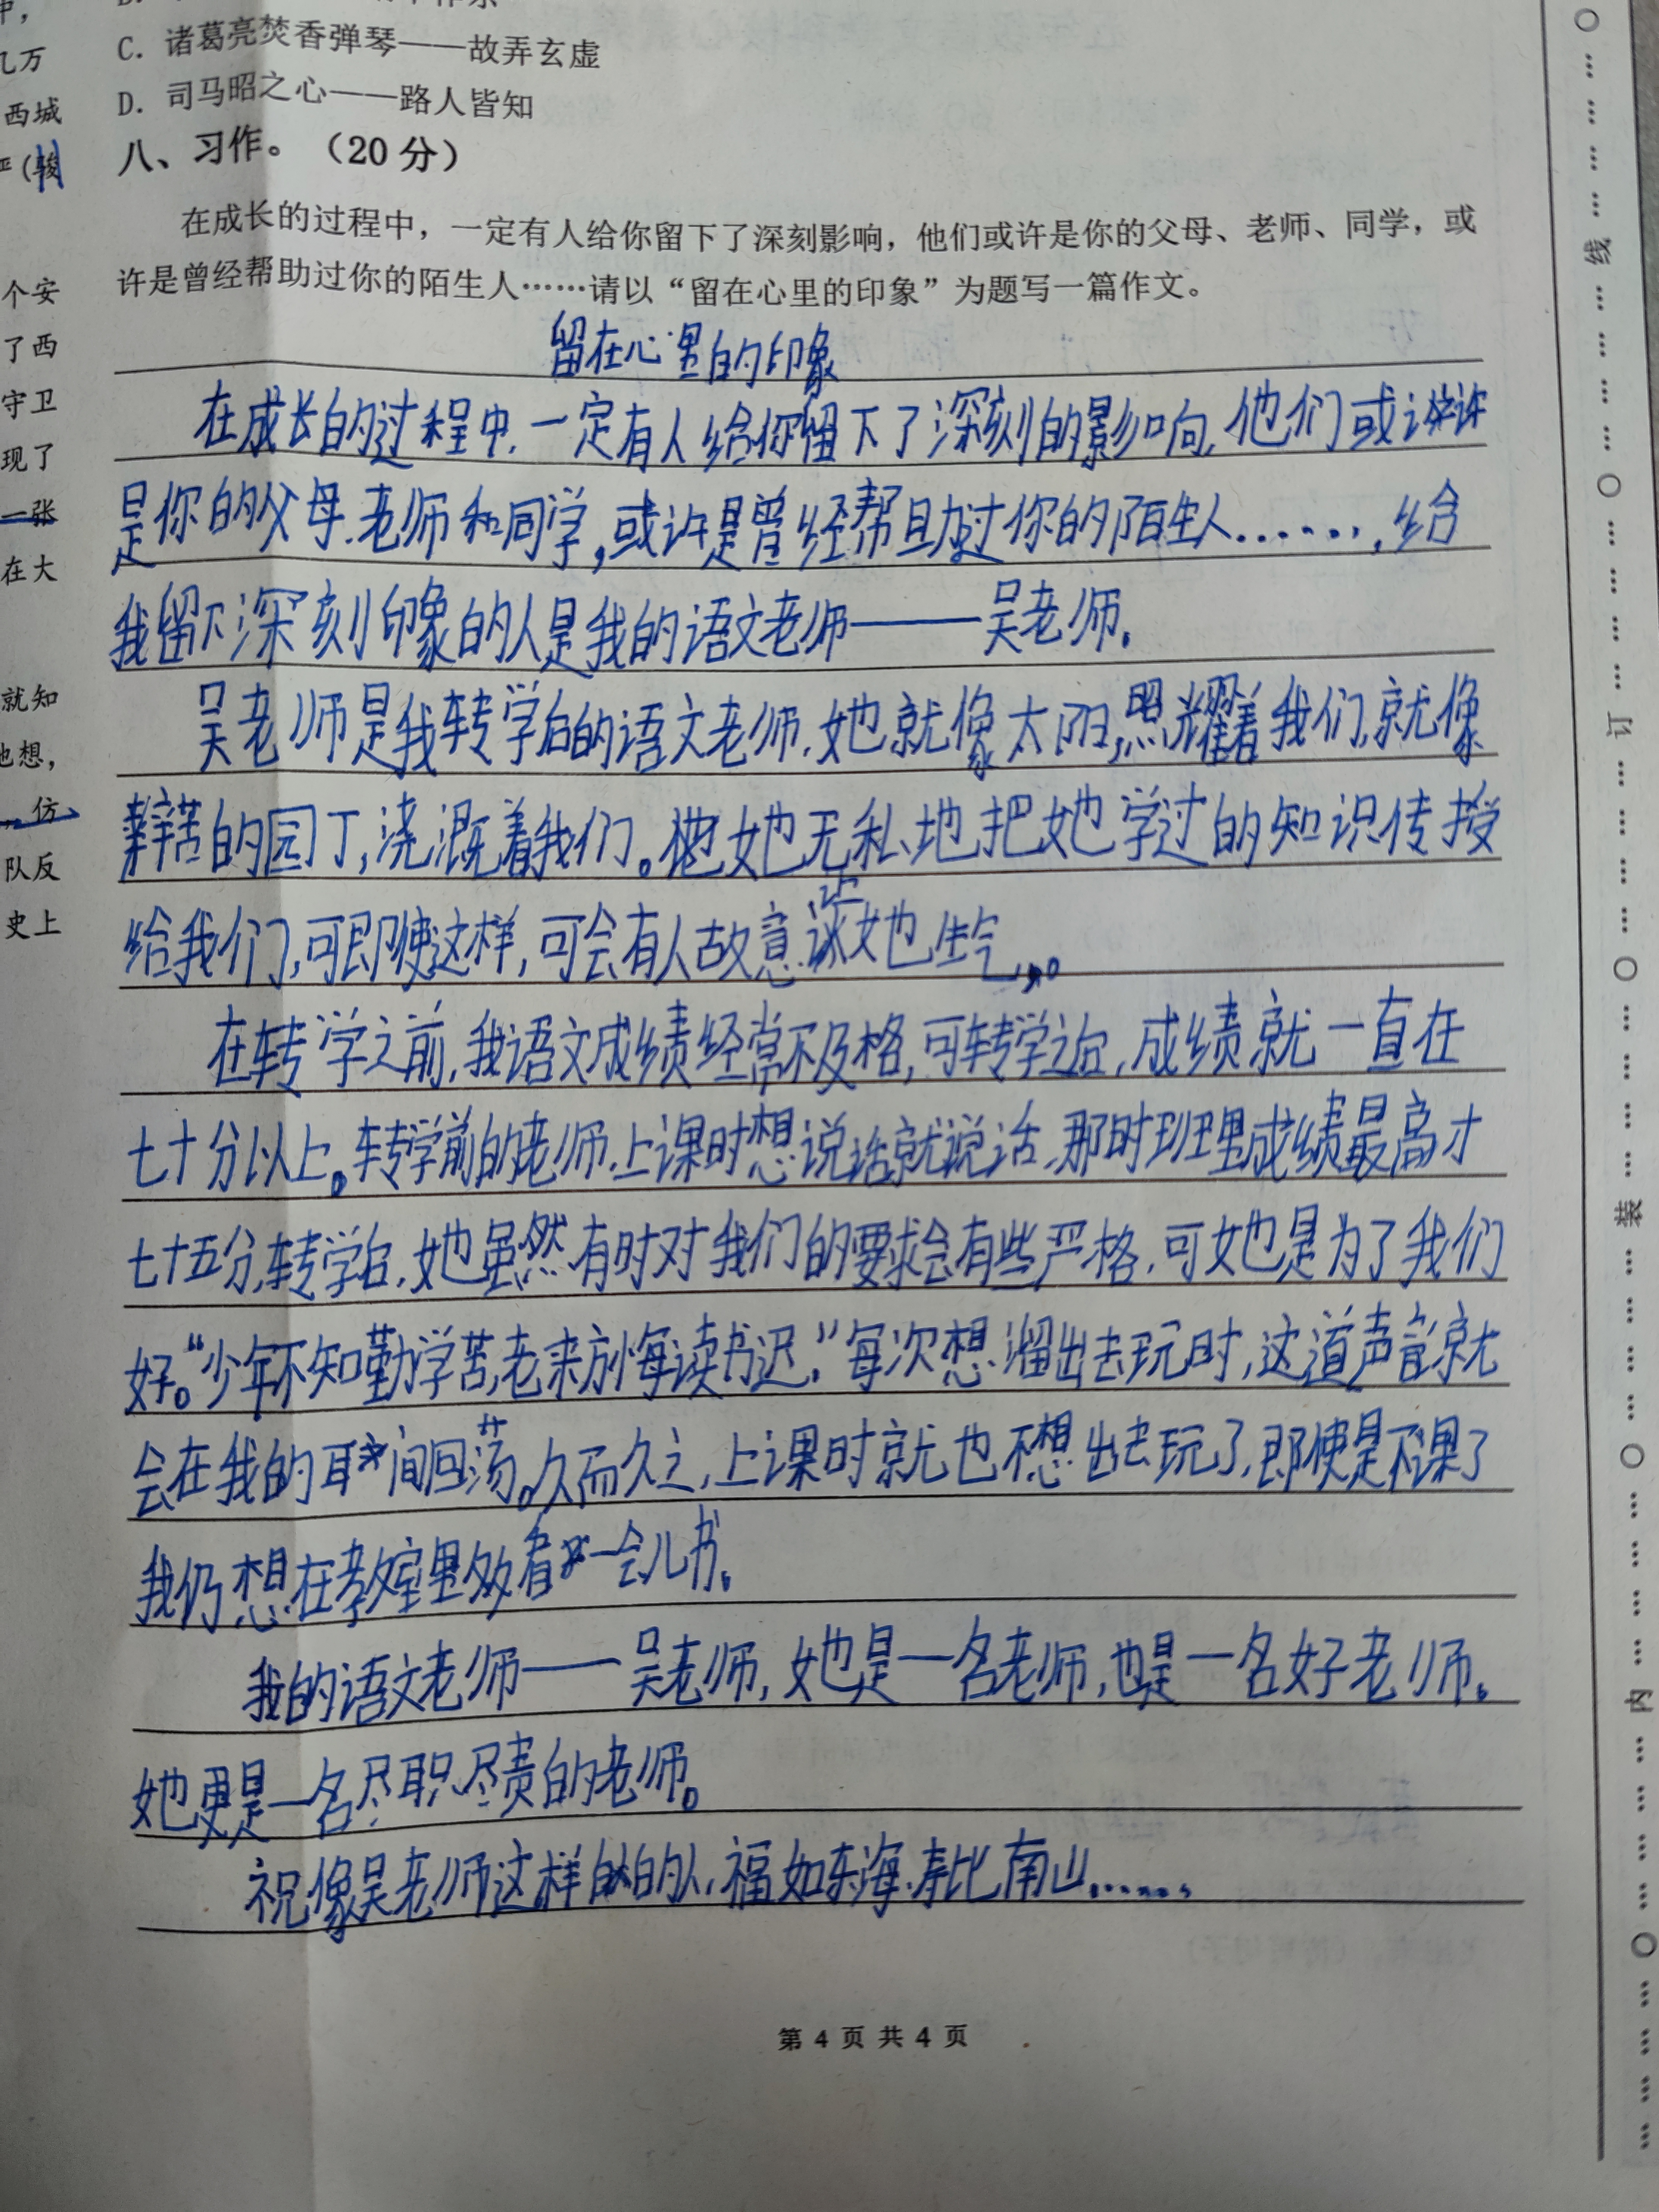 中，
C. 诸葛亮焚香弹琴——故弄玄虚
几万
D. 司马昭之心——路人皆知
西城
八、习作。（20 分）
严(骏
在成长的过程中，一定有人给你留下了深刻影响，他们或许是你的父母、老师、同学，或
许是曾经帮助过你的陌生人……请以“留在心里的印象”为题写一篇作文。
个安
了西
守卫
现了
一张
在大
就知
他想，
，仿
队反
史上
留在心里的印象
在成长的过程中，一定有人给你留下了深刻的影响，他们或许
是你的父母、老师和同学，或许是曾经帮助过你的陌生人……，给
我留下深刻印象的人是我的语文老师——吴老师。
吴老师是我转学后的语文老师，她就像太阳，照耀着我们，就像
辛苦的园丁，浇溉着我们。她无私地把她学过的知识传授
给我们，可即使这样，可会有人故意让她生气。
在转学之前，我语文成绩经常不及格，可转学之后，成绩就一直在
七十分以上。转学前的老师，上课时想说话就说话，那时班里成绩最高才
七十五分，转学后，她虽然有时对我们的要求会有些严格，可她也是为了我们
好。“少年不知勤学苦，老来方悔读书迟。”每次想溜出去玩时，这道声音就
会在我的耳间回荡。久而久之，上课时就也不想出去玩了，即使是下课了
我仍想在教室里多看一会儿书。
我的语文老师——吴老师，她是一名老师，也是一名好老师。
她更是一名尽职尽责的老师。
祝像吴老师这样的人，福如东海，寿比南山……
第 4 页 共 4 页
线
订
装
内